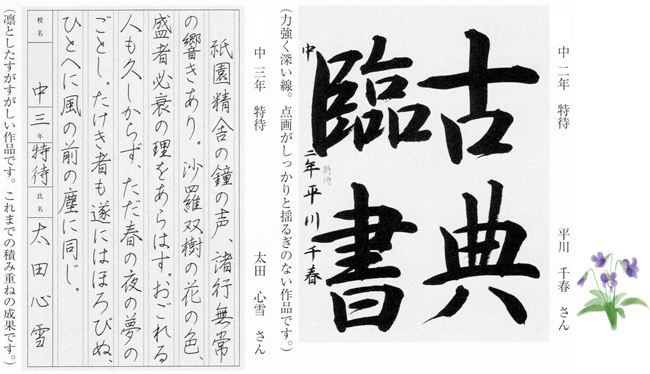 中 二年 特待 平川 千春 さん
古典
臨書
中二年 平川千春
特待
(力強く深い線。点画がしっかりと揺るぎのない作品です。)
中 三年 特待 太田 心雪 さん
祇園精舎の鐘の声、諸行無常
の響きあり。沙羅双樹の花の色、
盛者必衰の理をあらはす。おごれる
人も久しからず、ただ春の夜の夢の
ごとし。たけき者も遂にはほろびぬ、
ひとへに風の前の塵に同じ。
校名 中 三 年 特待 氏名 太田心雪
(凛としたすがすがしい作品です。これまでの積み重ねの成果です。)